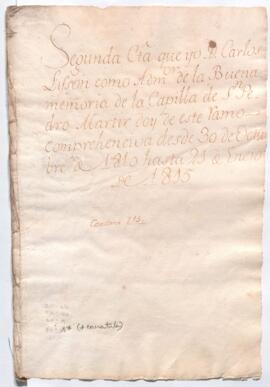 Segunda Cta que yo Dn Carlos
Lissem como Admor de la Buena
memoria de la Capilla de Sn Pe
dro Martir doy de este Ramo
comprehenciva desde 30 de Octu
bre de 1810 hasta 21 de Enero
de 1815
(+ caratula)